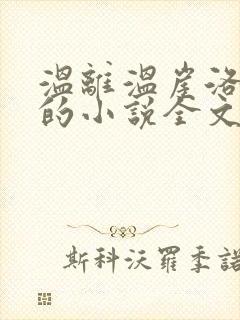 溫離溫崖洛
的小說全文
斯科沃羅季諾